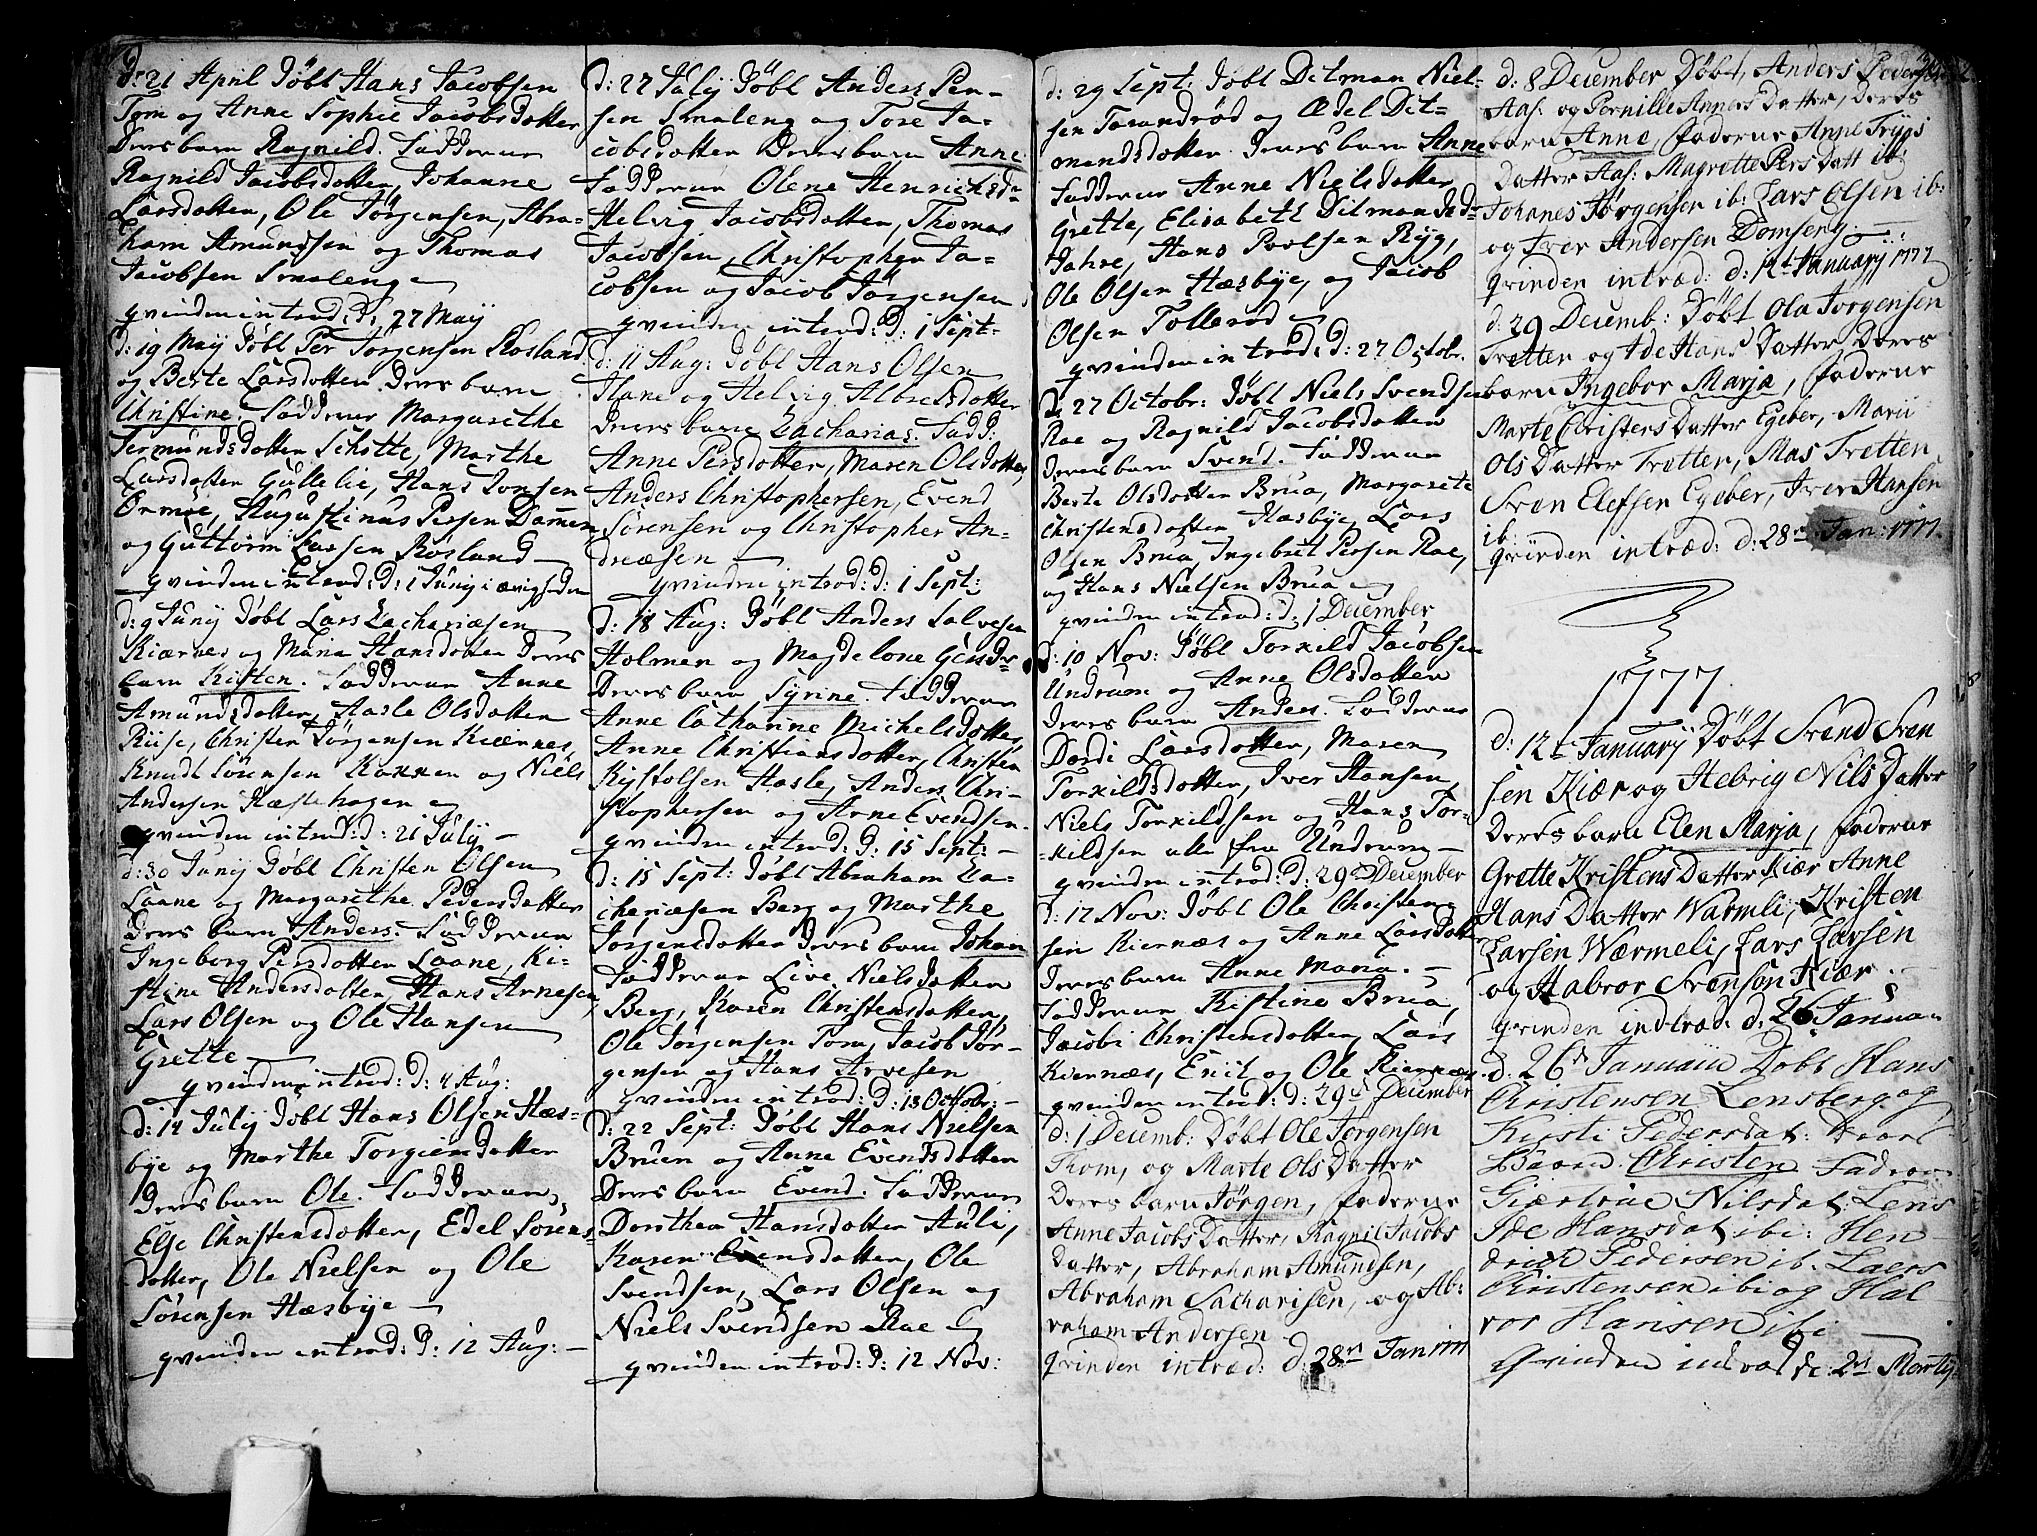 d: 21 April Døbt Hans Jacobsen
Tom og Anne Sophie Jacobsdotter
Deres barn Ragnild. Fadderne
Ragnild Jacobsdotter, Johanne
Larsdotter, Ole Jørgensen, Abra-
ham Amundsen og Thomas
Jacobsen Smaleng
qvinden introd: d: 27 Maij
d: 19 Maij Døbt Per Jørgensen Røsland
og Berte Larsdotter deres barn
Christine. Fadderne Margarethe
Larsdotter Gullelie, Hans Jonsen
Ormøe, Augustinus Persen Dammen
og Guttorm Larsen Røsland
qvinden introd: d: 1 Junij i
d: 9 Junij Døbt Lars Zachariæsen
Kiærnes og Maria Hansdotter Deres
barn Kisten. Fadderne Anne
Amundsdotter, Aasle Olsdotter
Riise, Christen Jørgensen Kiærnes,
Knudt Sørensen og Niels
Andersen Hæstehagen
qvinden introd: d: 21 Julij
d: 30 Junij Døbt Christen Olsen
Laane og Margarethe Pedersdotter
Deres barn Anders. Fadderne
Ingeberg Persdotter Laane, Ki-
stine Andersdotter, Hans Arnesen,
Lars Olsen og Ole Hansen
Grette
qvinden introd: d: 4 Aug:
d: 14 Julij Døbt Hans Olsen Hæs-
bye og Marthe Torgiersdotter
Deres barn Ole. Fadderne
Else Christensdotter, Edel Sørens-
dotter, Ole Nielsen og Ole
Sørensen Hæsbye
qvinden introd: d: 12 Aug:
d: 27 Julij Døbt Anders Per-
sen Smaleng og Tore Ja-
cobsdotter Deres barn Anne
Fadderne Olene Henrichsd-
Helvig Jacobsdotter, Thomas
Jacobsen, Christopher Ja-
cobsen og Jacob Jørgensen
qvinden introd: d: 1 Sept:
d: 11 Aug: Døbt Hans Olsen
Hane og Helvig Albretsdotter
Deres barn Zacharias. Fadd:
Anne Persdotter, Maren Olsdotter,
Anders Christophersen, Evend
Sørensen og Christopher An-
dreæsen
qvinden introd: d: 1 Sept:
d: 18 Aug: Døbt Anders Salvesen
Holmen og Magdelone
Deres barn Syrine. Fadderne
Anne Catharine Michelsdotter,
Anne Christiansdotter, Christen
Kistolsen Hasle, Anders Chri-
stophersen og Arne Evendsen.
qvinden introd: d: 15 Sept:
d: 15 Sept: Døbt Abraham Za-
chariæsen Berg og Marthe
Jørgensdotter deres barn Johan
Fadderne Live Nielsdotter
Berg, Karen Christensdotter,
Ole Jørgensen Tom, Jacob Jør-
gensen og Hans Arvesen
qvinden introd: d: 13 Octobr:
d: 22 Sept: Døbt Hans Nielsen
Bruen og Anne Evendsdotter
Deres barn Evend. Fadderne
Dorthea Hansdotter Auli,
Karen Evensdotter, Ole
Svendsen, Lars Olsen og
Niels Svendsen Rae
qvinden introd: d: 12 Nov:
d: 29 Sept: Døbt Ditman Niel-
sen Torandrød og Ædel Dit-
mandsdotter deres barn Anne
Fadderne Anne Nielsdotter
Grette, Elisabeth Ditmandsd-
Jahre, Hans Povlsen Ryg,
Ole Olsen Hæsbye, og Jacob
Olsen Tollerød
qvinden introd: d: 27 Octobr.
d: 27 Octobr: Døbt Niels Svendsen
Rae og Ragnild Jacobsdotter
deres barn Svend. Fadderne
Berte Olsdotter Brua, Margarete
Christensdotter Hæsbye, Lars
Olsen Brua, Ingebret Persen Rae,
og Hans Nielsen Brua
qvinden introd: d: 1 December
d: 10 Nov: Døbt Torkild Jacobsen
Undrum og Anne Olsdotter
deres barn Anders. Fadderne
Dordi Larsdotter, Maren
Torkildsdotter, Iver Hansen,
Niels Torkildsen og Hans Tor-
-kildsen alle fra Undrum
qvinden introd: d: 29de December
d: 17 Nov: Døbt Ole Christen-
sen Kiernæs og Anne Larsdott
deres barn Anne Maria.
Fadderne Kistine Brua,
Jacobi Christensdotter, Lars
Kiernæs, Erik og Ole Kiernæs
qvinden introd: d: 29de December
d: 1 Decemb: Døbt Ole Jørgensen
Thom, og Marte Ols Datter
Deres barn Jørgen, faderne
Anne Jacobs Datter, Ragnil Jacobs
Datter, Abraham Amundsen,
Abraham Sacharisen, og Ab:
raham Andersen
qvinden intræd: d: 28n Jan 1777
d: 8 December Døbt, Anders Pedersen
Aas: og Pernille Anners Datter, Deres
barn Anne, faderne Anne Trygs
Datter Aas: Magrette Pers Datt ib:
Johanes Jørgensen ib: Lars Olsen ib:
og Iver Andersen Domseng
qvinden intræd: d: 12t Januarij 1777
d: 29 Decemb: Døbt Ola Jorgensen
Tretten og Ide Hans Datter Deres
barn Ingebor Marja, faderne
Marte Cristens Datter Egeber, Marii
Ols Datter Tretten, Mas Tretten
Sven Elefsen Egeber, Iver Hansen
ib:
qvinden intræd: d: 28n Jan: 1777.
1777.
d: 12te Januarij Døbt Svend Sven
sen Kiær og Hebrig Nils Datter
Deres barn Elen Marja, faderne
Grette Kristens Datter Kiær Anne
Hans Datter Warmli, Kristen
Larsen Wærmeli, Lars Larsen
og Habvor Svenson Kiær.
qvinden indtræd: d: 26 Januar
d. 26d Januaiu Døbt Hans
Christensen Lensberg og
Kirsti Pedersdat: Deres
Baarn Christen Fadrne
Giærtrue Nilsdat: Lens
Ide Hansdat ibi: Hen
drich Pedersen ib. Laers
Christensen ibi og Hal
vor Hansen ibi
Qvinden indræd de: 2n Martij